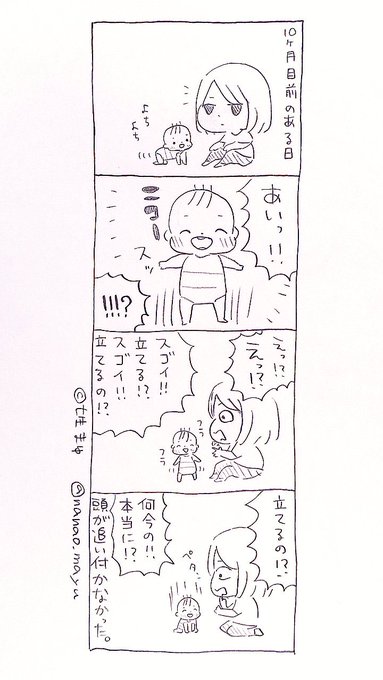 10ヶ月目前のある日
よち
よち
あいっ!!
ニター
スッ
!!!?
えっ!?
えっ!?
スゴイ!!
立てる!?
スゴイ!!
立てるの!?
フラ
フラ
立てるの!?
何今の!!
本当に!?
ペタン
頭が追い付かなかった。
@nanao.mayu